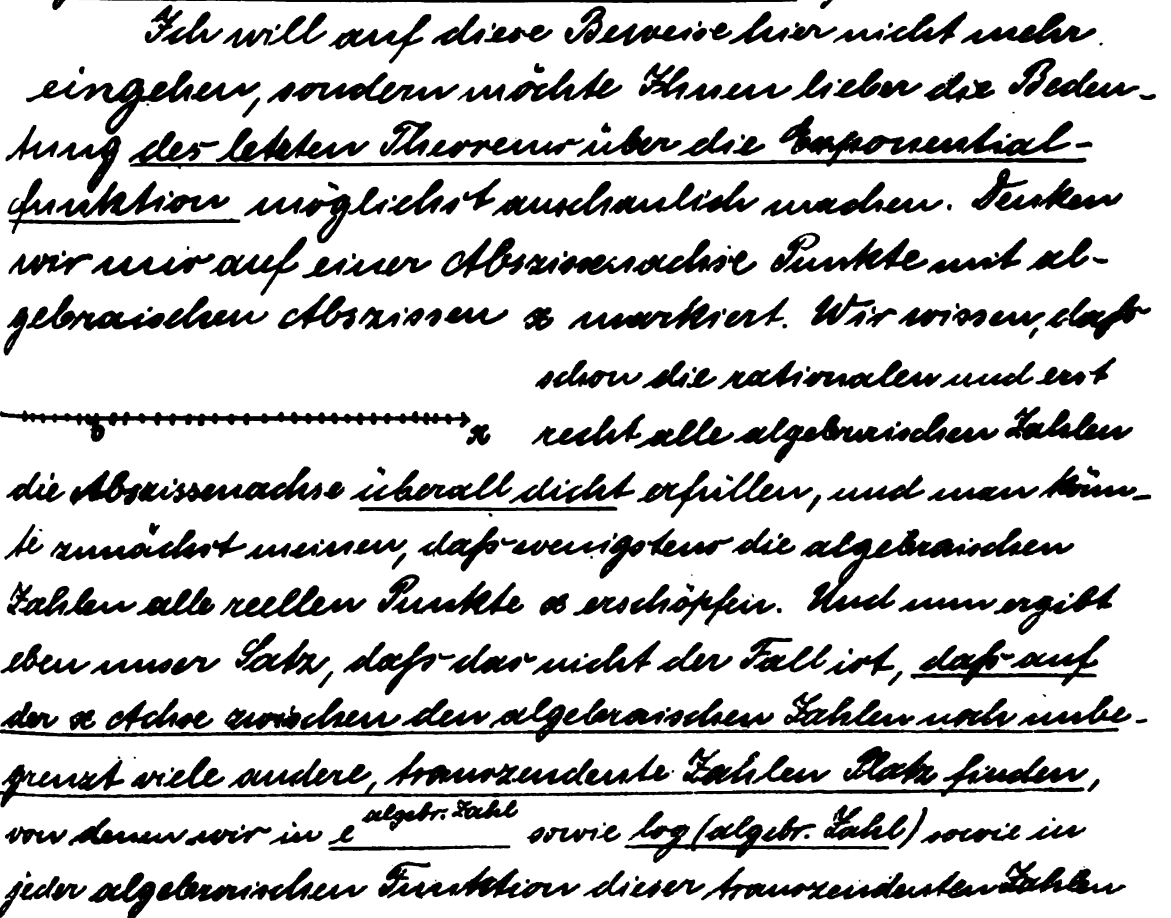 Ich will auf diese Beweise hier nicht mehr
eingehen, sondern möchte Ihnen lieber die Bedeu-
tung des letzten Theorems über die Exponential-
funktion möglichst anschaulich machen. Denken
wir uns auf einer Abszissenachse Punkte mit al-
gebraischen Abszissen x markiert. Wir wissen, daß
schon die rationalen und erst
0 x recht alle algebraischen Zahlen
die Abszissenachse überall dicht erfüllen, und man könn-
te zunächst meinen, daß wenigstens die algebraischen
Zahlen alle reellen Punkte x erschöpfen. Und nun ergibt
eben unser Satz, daß das nicht der Fall ist, daß auf
der x Achse zwischen den algebraischen Zahlen noch unbe-
grenzt viele andere, transzendente Zahlen Platz finden,
von denen wir in e^algebr. Zahl sowie log (algebr. Zahl) sowie in
jeder algebraischen Funktion dieser transzendenten Zahlen